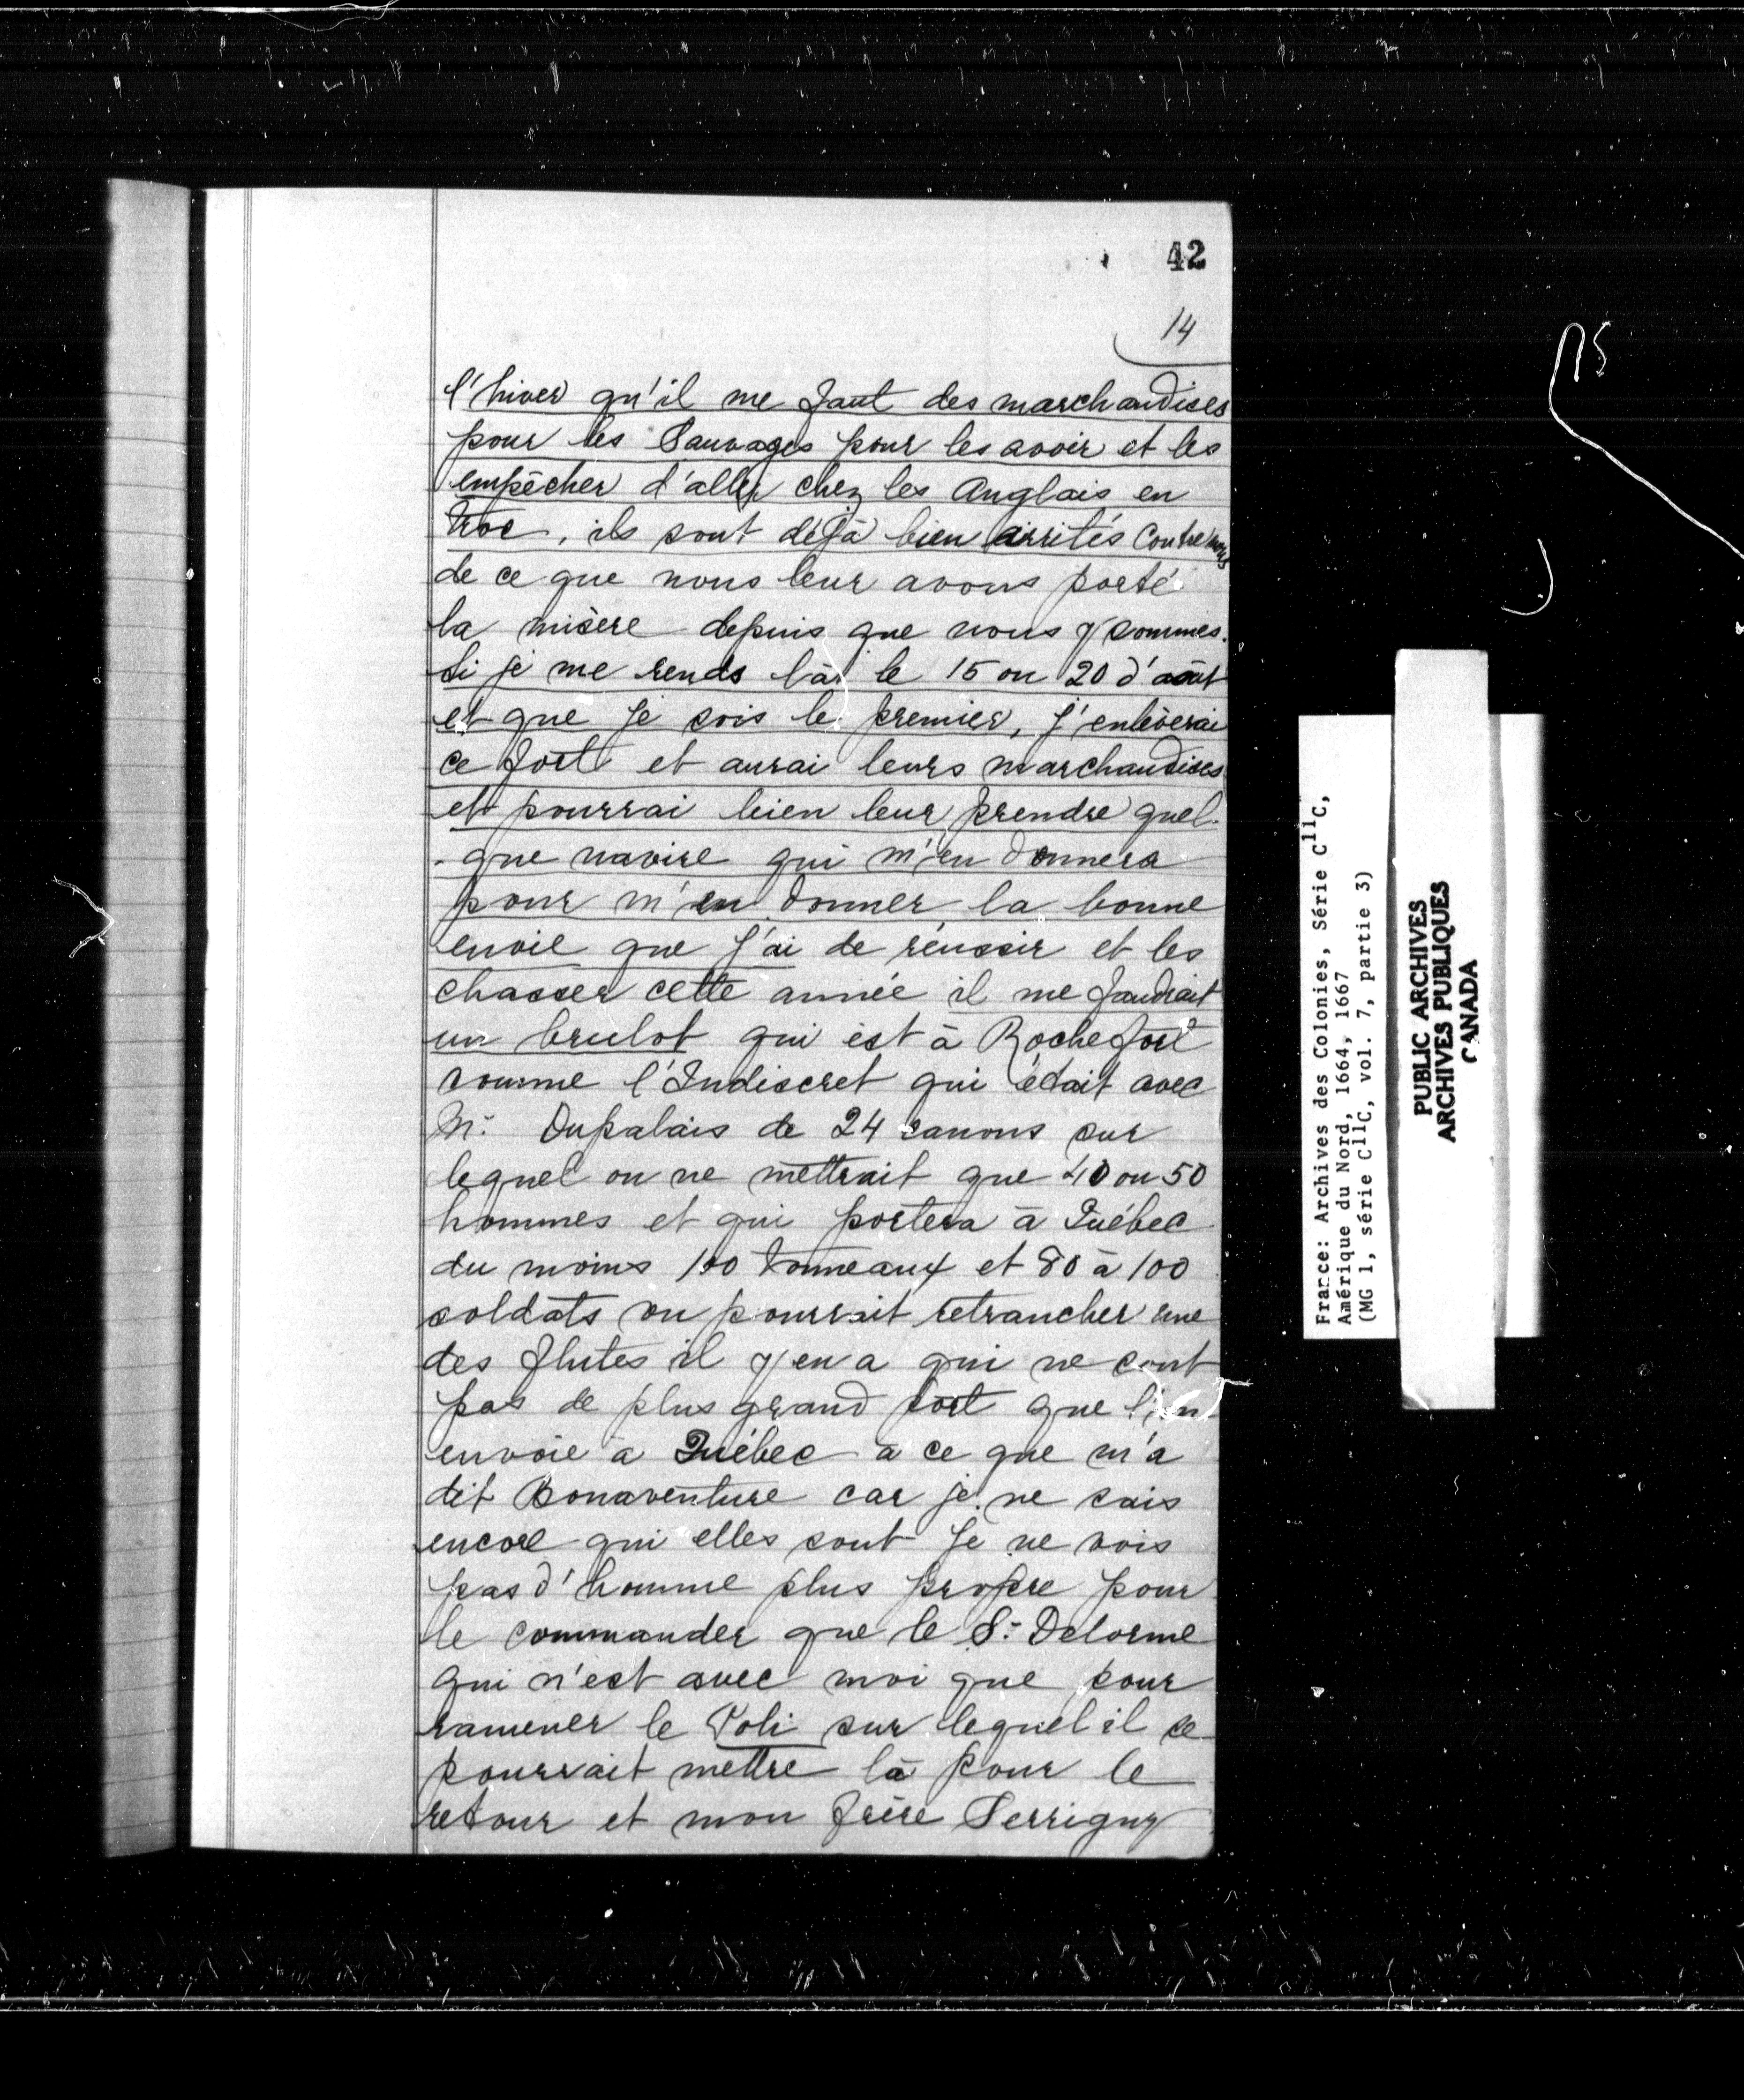 42
14
l'hiver qu'il me faut des marchandises
pour les Sauvages pour les avoir et les
empêcher d'aller chez les Anglais en
troc, ils sont déjà bien irrités contre nous
de ce que nous leur avons porté
la misère depuis que nous y sommes.
Si je me rends là le 15 ou 20 d'août
et que je sois le premier, j'enlèverai
ce fort et aurai leurs marchandises
et pourrai bien leur prendre quel-
-que navire qui m'en donnera
pour m'en donner la bonne
envie que j'ai de réussir et les
chasser cette année il me faudrait
un brulot qui est à Rochefort
comme l'Indiscret qui était avec
Mr Dupalais de 24 canons sur
lequel on ne mettrait que 40 ou 50
hommes et qui portera à Québec
du moins 100 tonneaux et 80 à 100
soldats on pourrait retrancher une
des flutes il y en a qui ne sont
pas de plus grand port que l'on
envoie à Québec à ce que m'a
dit Bonaventure car je ne sais
encore qui elles sont je ne vois
pas d'homme plus propre pour
le commander que le Sr Delorme
qui n'est avec moi que pour
ramener le Poli sur lequel il se
pourrait mettre là pour le
retour et mon frère Serrigny
France: Archives des Colonies, Série C11C,
Amérique du Nord, 1664, 1667
(MG 1, série C11C, vol. 7, partie 3)
PUBLIC ARCHIVES
ARCHIVES PUBLIQUES
CANADA